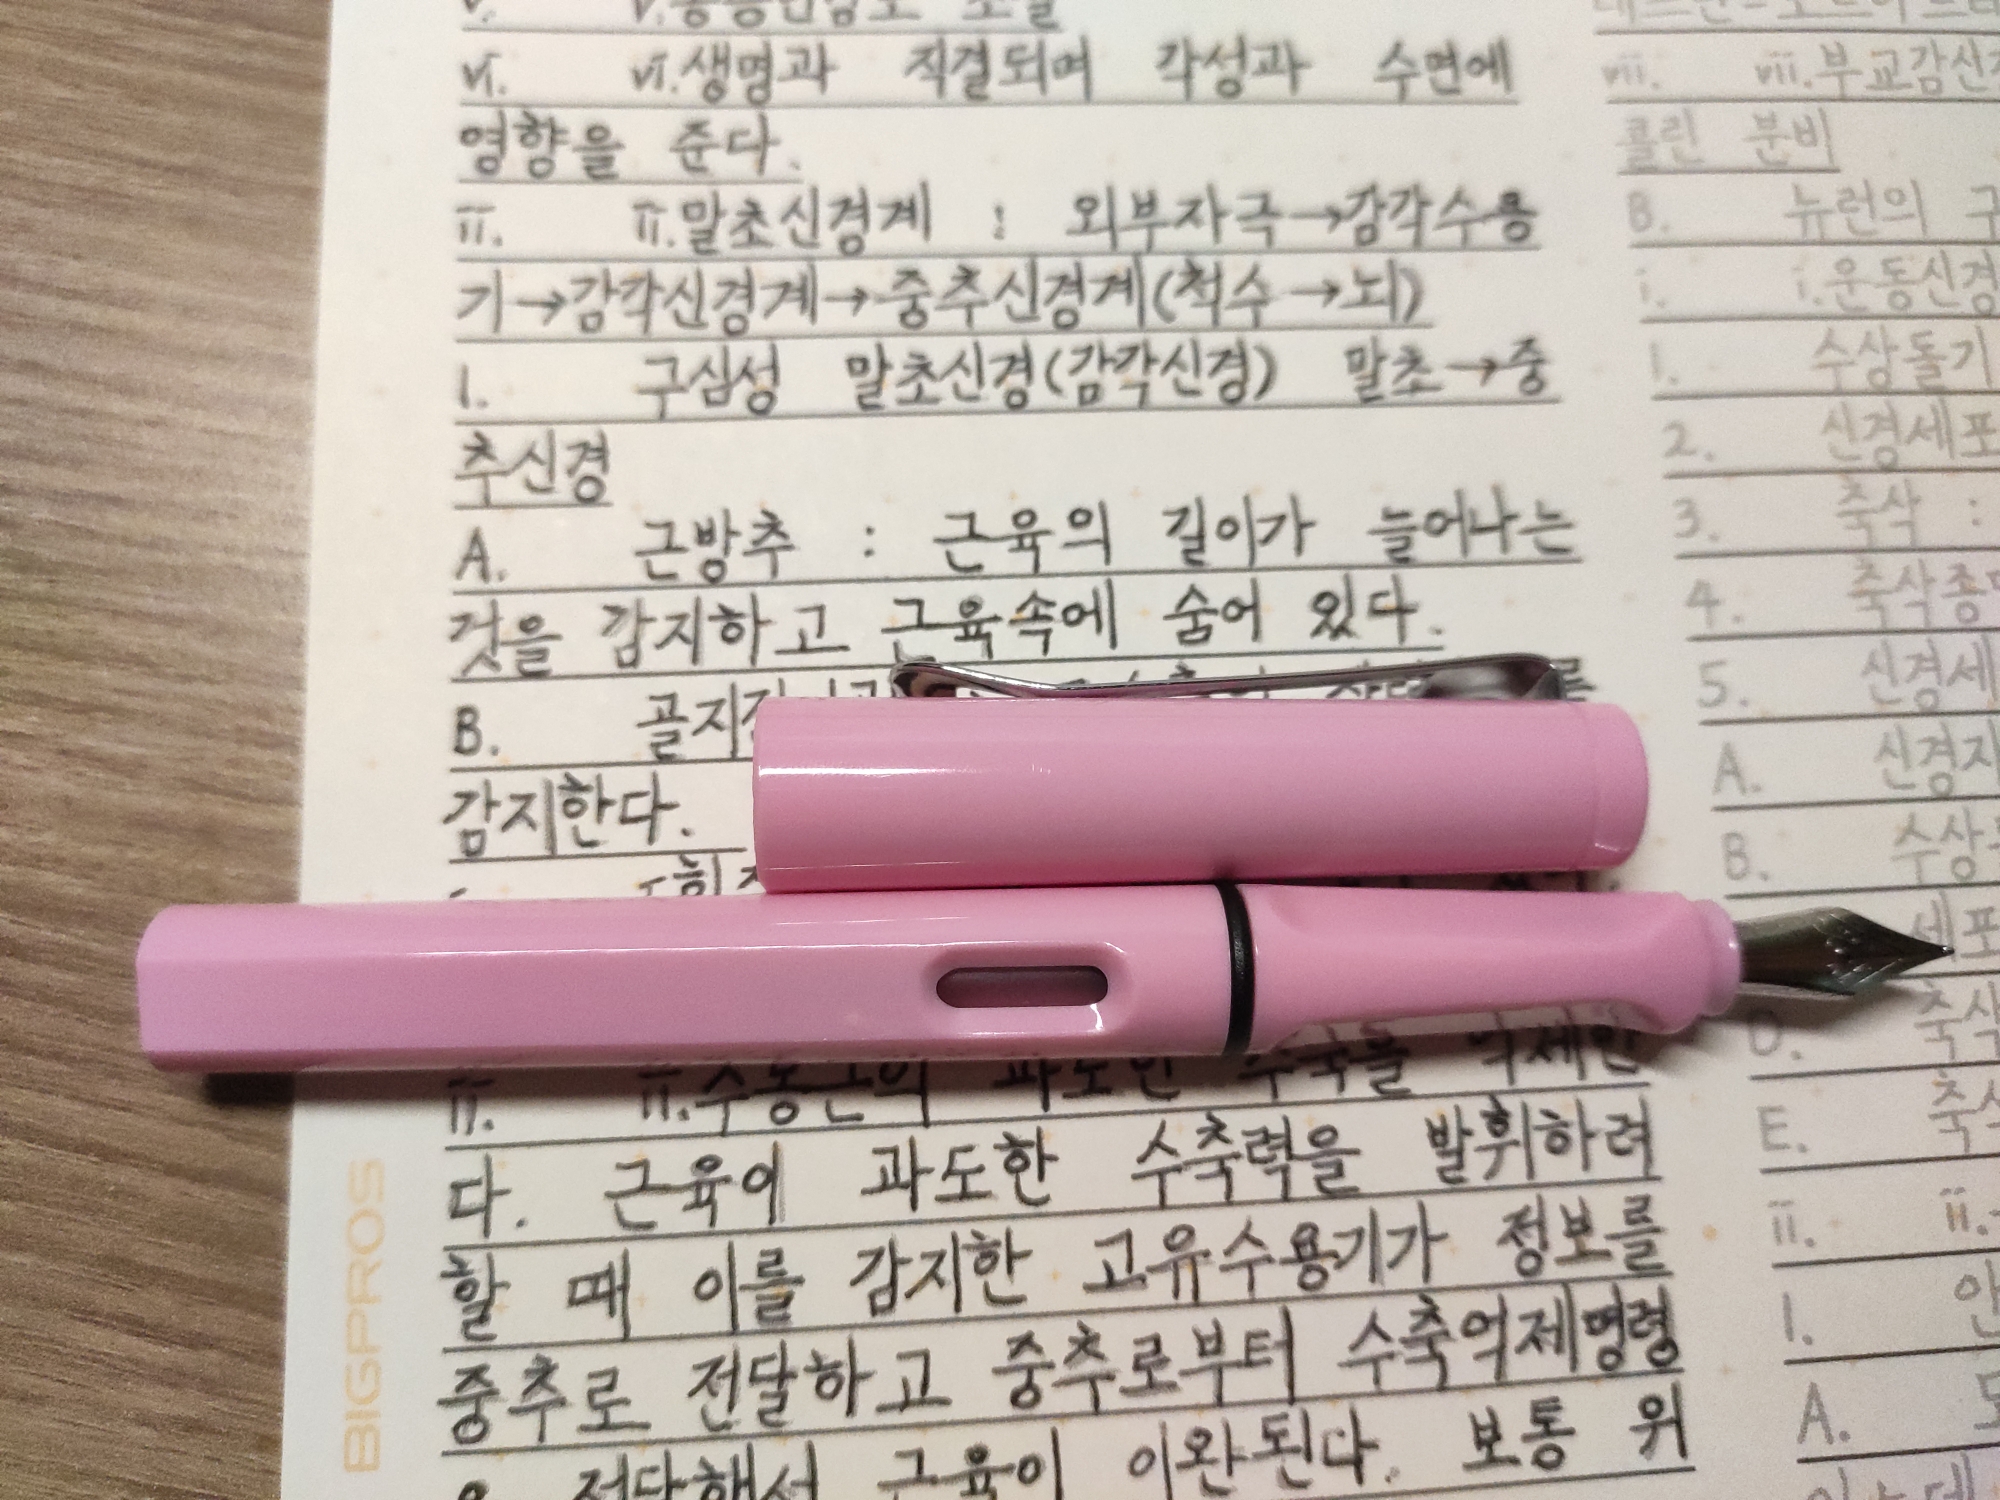 vi. vi.생명과 직결되며 각성과 수면에
영향을 준다.
ii. ii.말초신경계 : 외부자극→감각수용
기→감각신경계→중추신경계(척수→뇌)
1. 구심성 말초신경(감각신경) 말초→중
추신경
A. 근방추 : 근육의 길이가 늘어나는
것을 감지하고 근육속에 숨어 있다.
B. 골지
감지한다.
ii. ii.
다. 근육이 과도한 수축력을 발휘하려
할 때 이를 감지한 고유수용기가 정보를
중추로 전달하고 중추로부터 수축억제명령
전달해서 근육이 이완된다. 보통 위
BIGPROS
vii. vii.부교감신
콜린 분비
B. 뉴런의 구
i. i.운동신경
1. 수상돌기
2. 신경세포
3. 축삭 :
4. 축삭종
5. 신경세
A. 신경
B. 수상
세포
D. 축삭
E. 축
ii. ii.
1.
A.